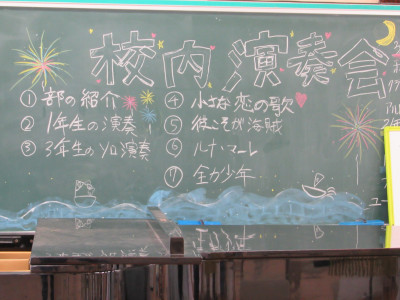 校内演奏会
① 部の紹介
② 1年生の演奏
③ 3年生のソロ演奏
④ 小さな恋の歌
⑤ 彼こそが海賊
⑥ ルナ・マーレ
⑦ 全力少年